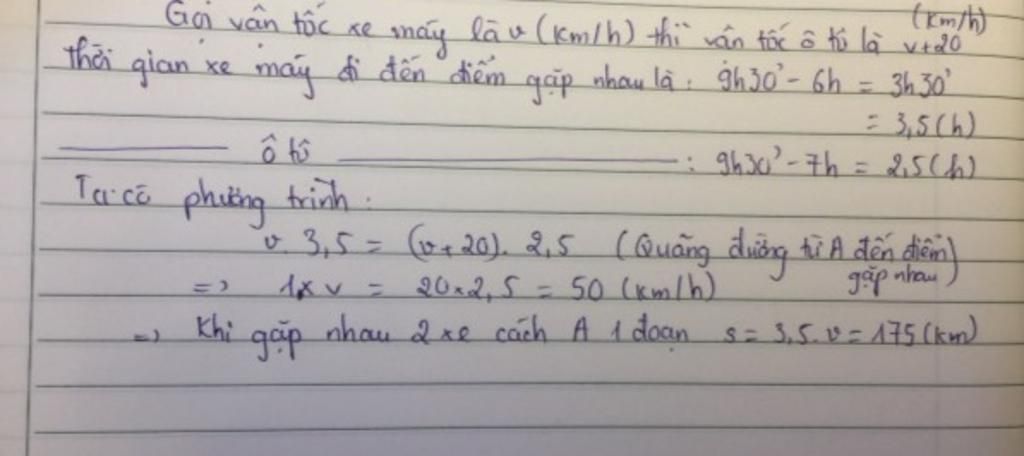 Gọi vận tốc xe máy là v (km/h) thì vận tốc ô tô là v+20 (km/h)
Thời gian xe máy đi đến điểm gặp nhau là : 9h30' - 6h = 3h30'
= 3,5 (h)
ô tô : 9h30' - 7h = 2,5 (h)
Ta có phương trình :
v. 3,5 = (v+20). 2,5 (Quãng đường từ A đến điểm gặp nhau)
=> 1x v = 20x2,5 = 50 (km/h)
=> Khi gặp nhau 2 xe cách A 1 đoạn s = 3,5. v = 175 (km)